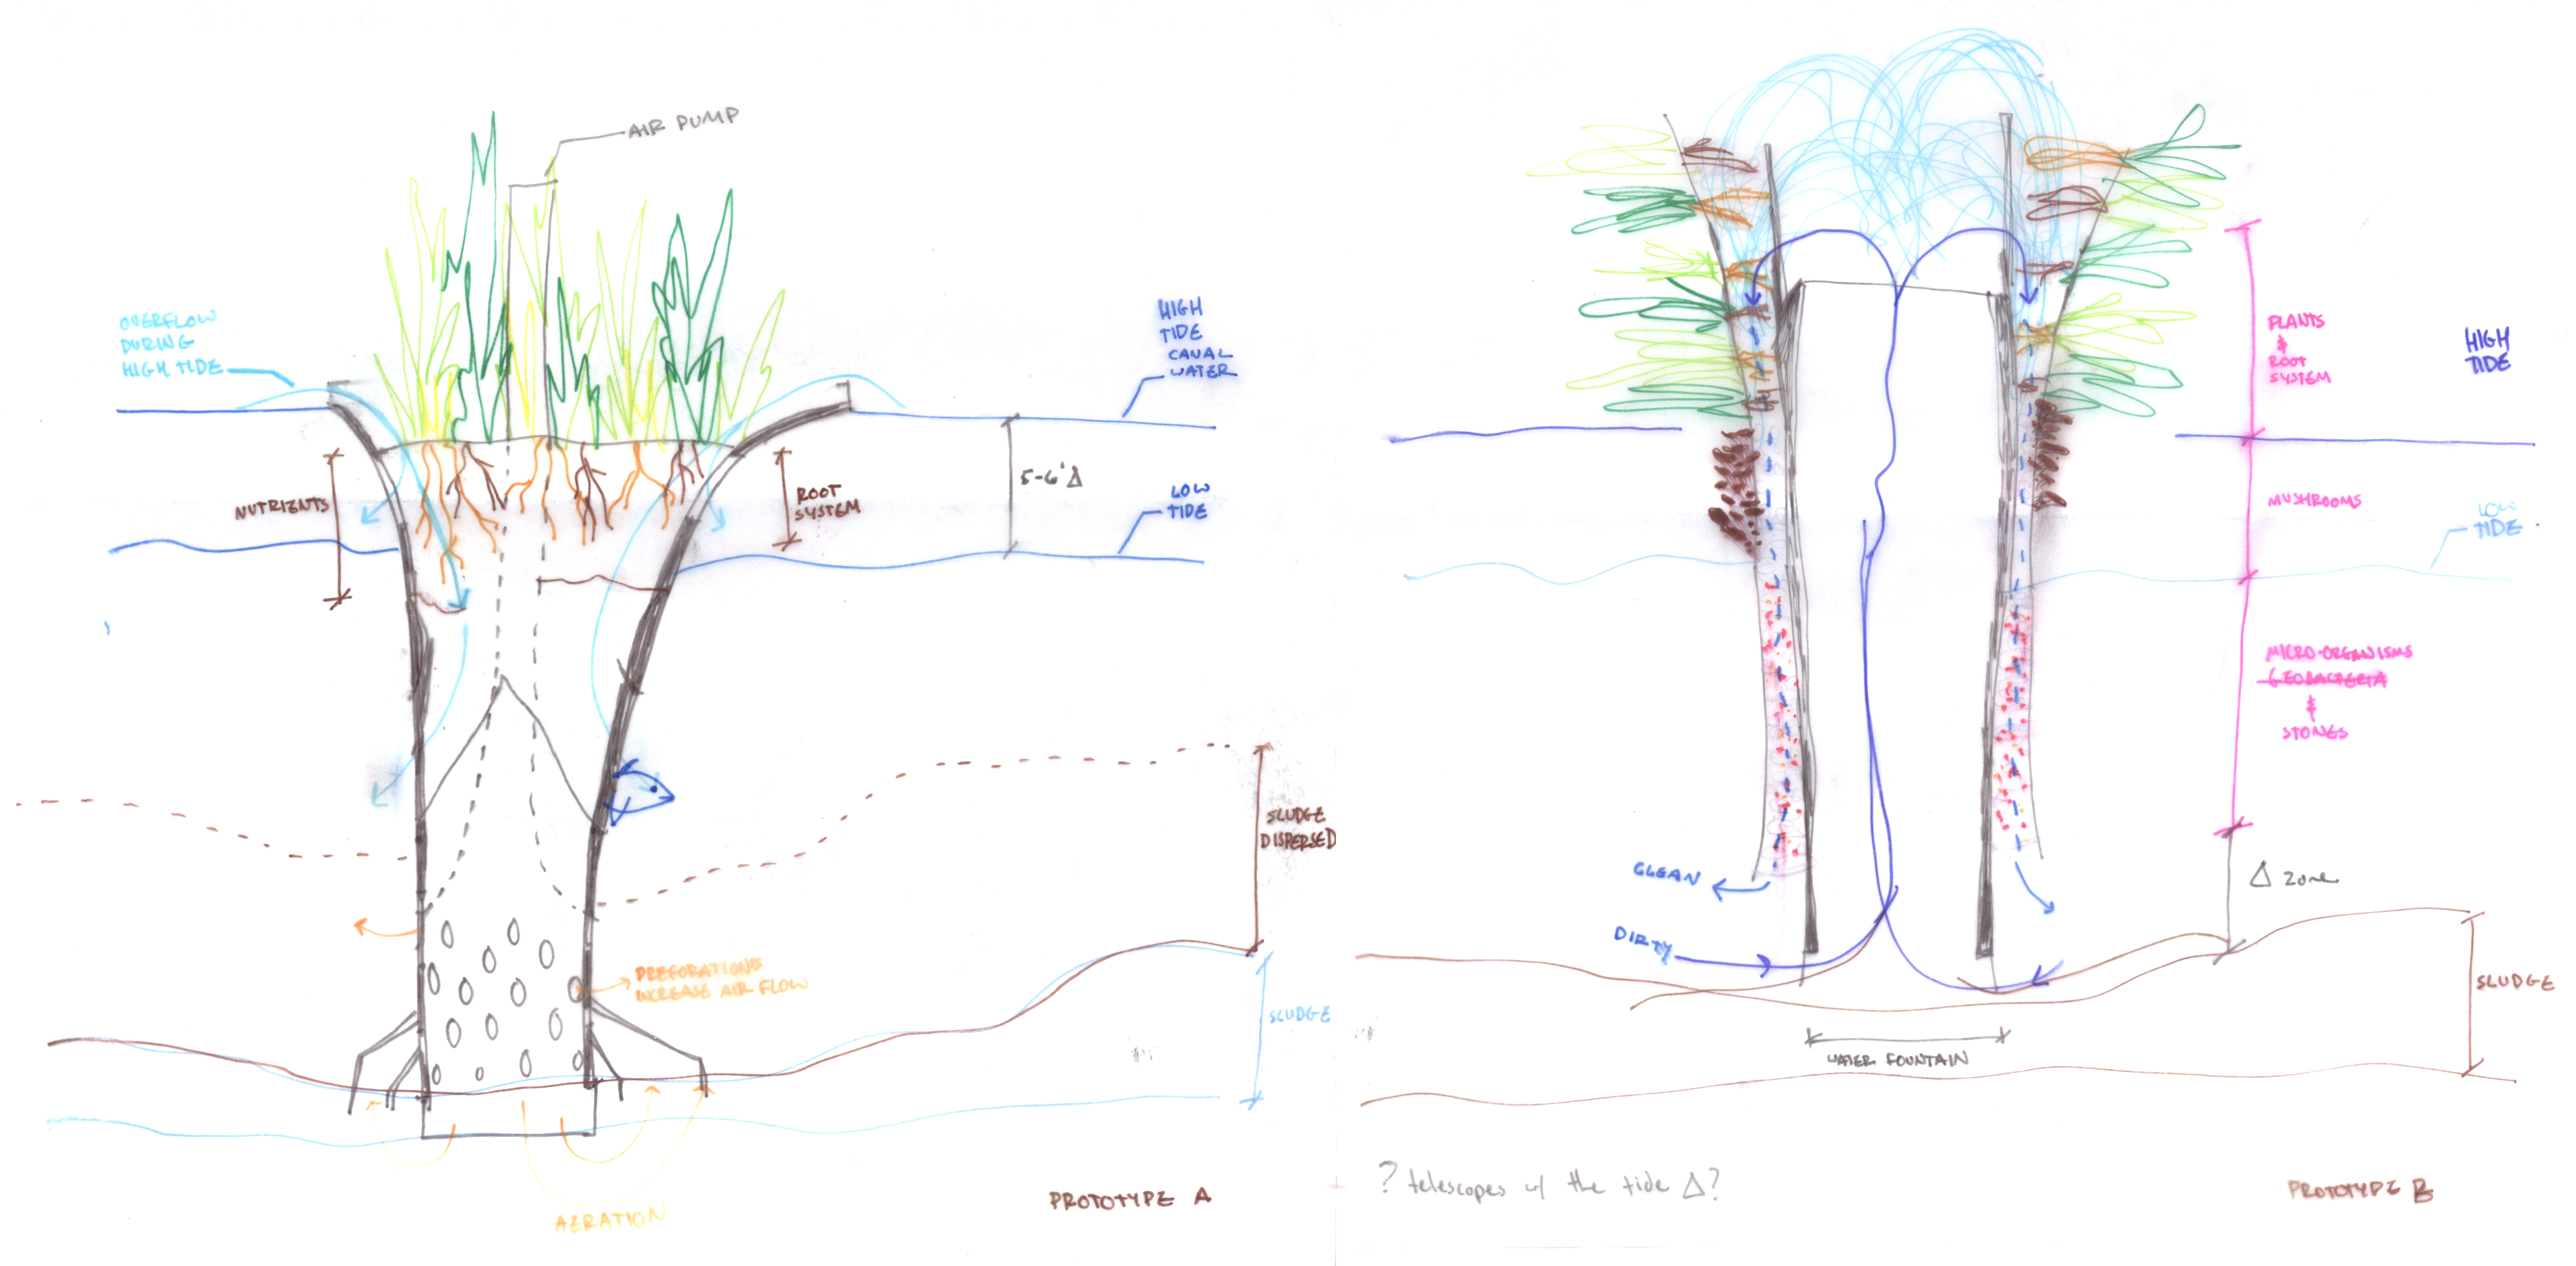 AIR PUMP
OVERFLOW
DURING
HIGH TIDE
HIGH
TIDE
CANAL
WATER
5-6' Δ
LOW
TIDE
NUTRIENTS
ROOT
SYSTEM
SLUDGE
DISPERSED
PREFORATIONS
INCREASE AIR FLOW
SLUDGE
AERATION
PROTOTYPE A
PLANTS
&
ROOT
SYSTEM
HIGH
TIDE
MUSHROOMS
LOW
TIDE
MICRO-ORGANISMS
GEOBACTERIA
&
STONES
CLEAN
Δ ZONE
DIRTY
SLUDGE
WATER FOUNTAIN
? telescopes w/ the tide Δ?
PROTOTYPE B